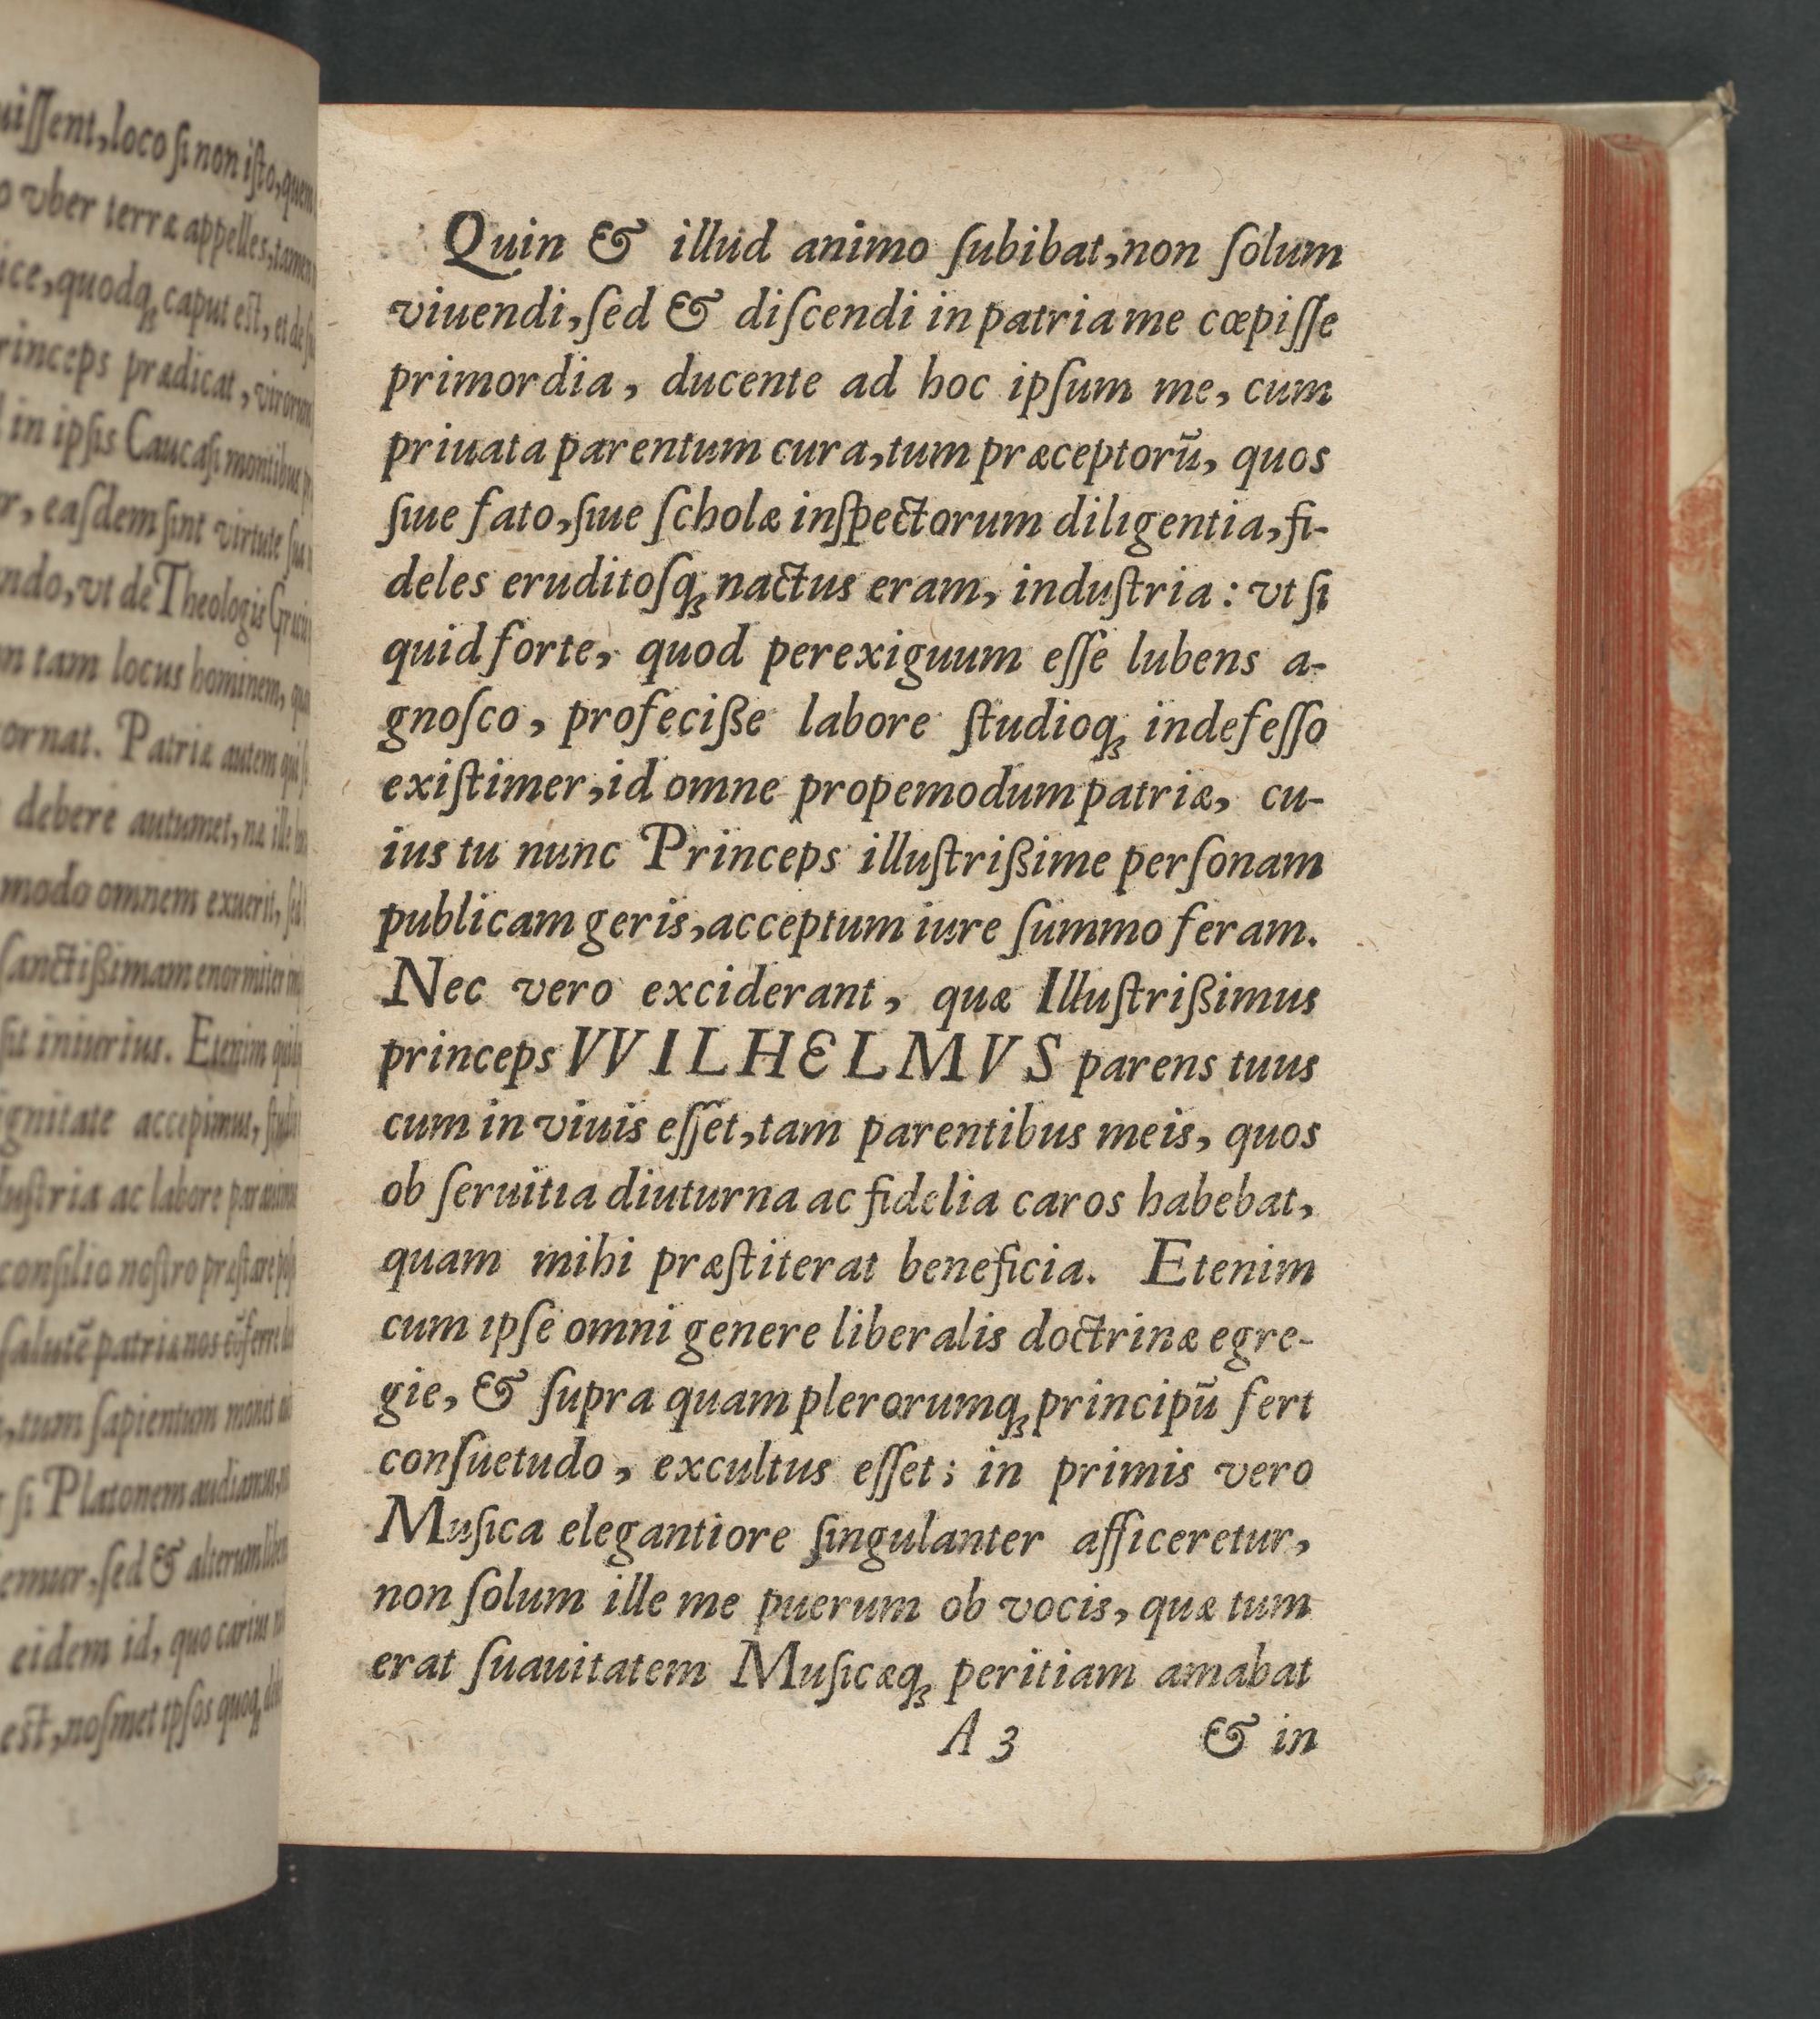 uiſſent, loco ſi non iſto, quem
o vber terræ appelles, tamen
ice, quodq́ꝫ caput eſt, et de
rinceps prædicat, virorum
in ipſis Caucaſi montibus
r, eaſdem ſint virtute
ndo, vt de Theologis
n tam locus hominem,
ornat. Patriæ autem
debere autumet, næ ille
modo omnem exuerit, ſed
ſanctißimam enormiter
ſit iniurius. Etenim
gnitate accepimus,
duſtria ac labore
conſilio noſtro
ſalutē patriæ nos cōferre
tum ſapientum monet
ſi Platonem audiamus,
emur, ſed & alterum
eidem id, quo carius
eſt, noſmet ipſos quoqꝫ
Quin & illud animo ſubibat, non ſolum
viuendi, ſed & diſcendi in patria me cœpiſſe
primordia, ducente ad hoc ipſum me, cum
priuata parentum cura, tum præceptorū, quos
ſiue fato, ſiue ſcholæ inſpectorum diligentia, fi-
deles eruditoſqꝫ nactus eram, induſtria: vt ſi
quid forte, quod perexiguum eſſe lubens a-
gnoſco, profeciße labore ſtudioqꝫ indefeſſo
exiſtimer, id omne propemodum patriæ, cu-
ius tu nunc Princeps illuſtrißime perſonam
publicam geris, acceptum iure ſummo feram.
Nec vero exciderant, quæ Illuſtrißimus
princeps VVILHELMVS parens tuus
cum in viuis eſſet, tam parentibus meis, quos
ob ſeruitia diuturna ac fidelia caros habebat,
quam mihi præſtiterat beneficia. Etenim
cum ipſe omni genere liberalis doctrinæ egre-
gie, & ſupra quam plerorumqꝫ principū fert
conſuetudo, excultus eſſet; in primis vero
Muſica elegantiore ſingulariter afficeretur,
non ſolum ille me puerum ob vocis, quæ tum
erat ſuauitatem Muſicæqꝫ peritiam amabat
A 3 & in